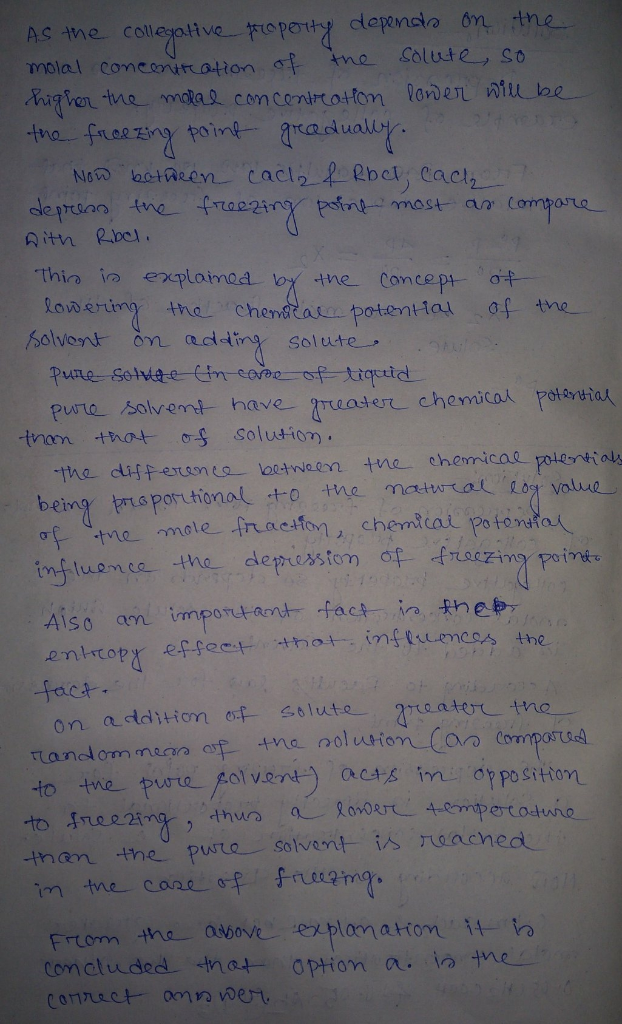 As the collegative property depends on the
molal concentration of the solute, so
higher the molal concentration lower will be
the freezing point gradually.
Now between CaCl2 & RbCl, CaCl2
depress the freezing point most as compare
with RbCl.
This is explained by the concept of
lowering the chemical potential of the
solvent on adding solute.
pure solute (in case of liquid
pure solvent have greater chemical potential
than that of solution.
The difference between the chemical potentials
being proportional to the natural log value
of the mole fraction, chemical potential
influence the depression of freezing point.
Also an important fact is the
entropy effect that influences the
fact.
On addition of solute greater the
randomness of the solution (as compared
to the pure solvent) acts in opposition
to freezing, thus a lower temperature
than the pure solvent is reached
in the case of freezing.
From the above explanation it is
concluded that option a. is the
correct answer.